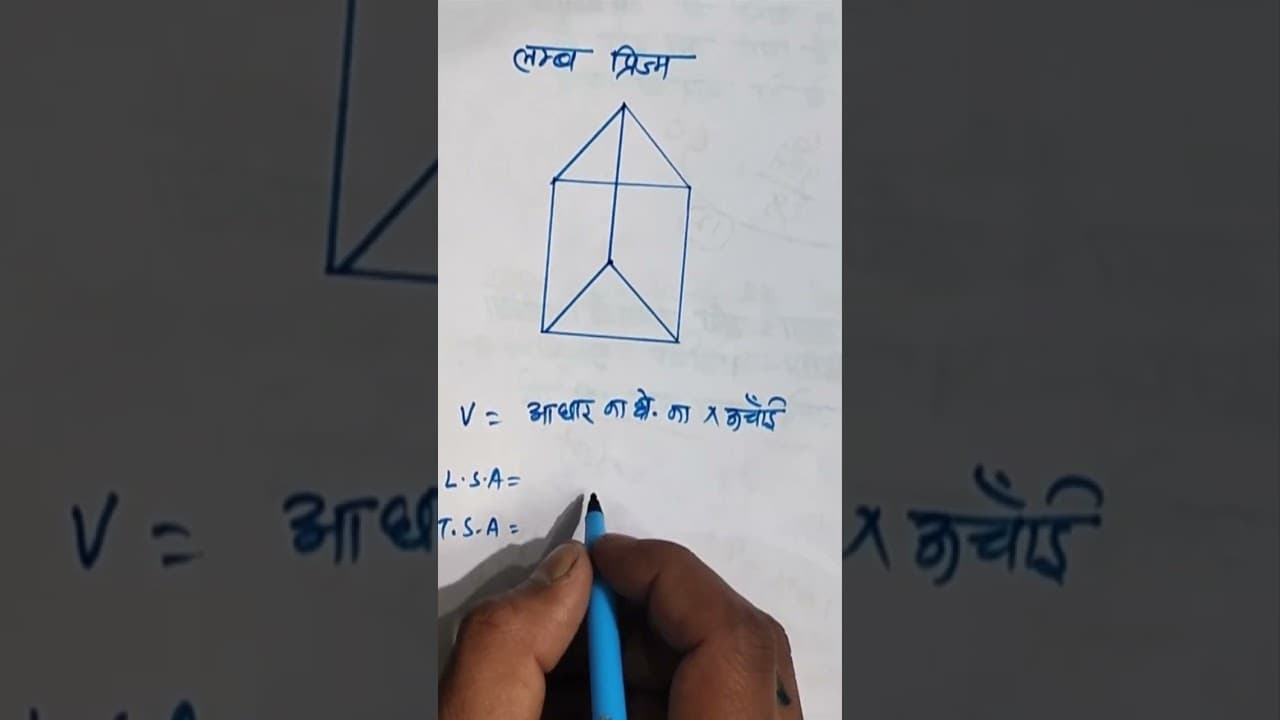 लम्ब प्रिज्म
V = आधार का क्षे. का × ऊचाँई
L.S.A =
T.S.A =